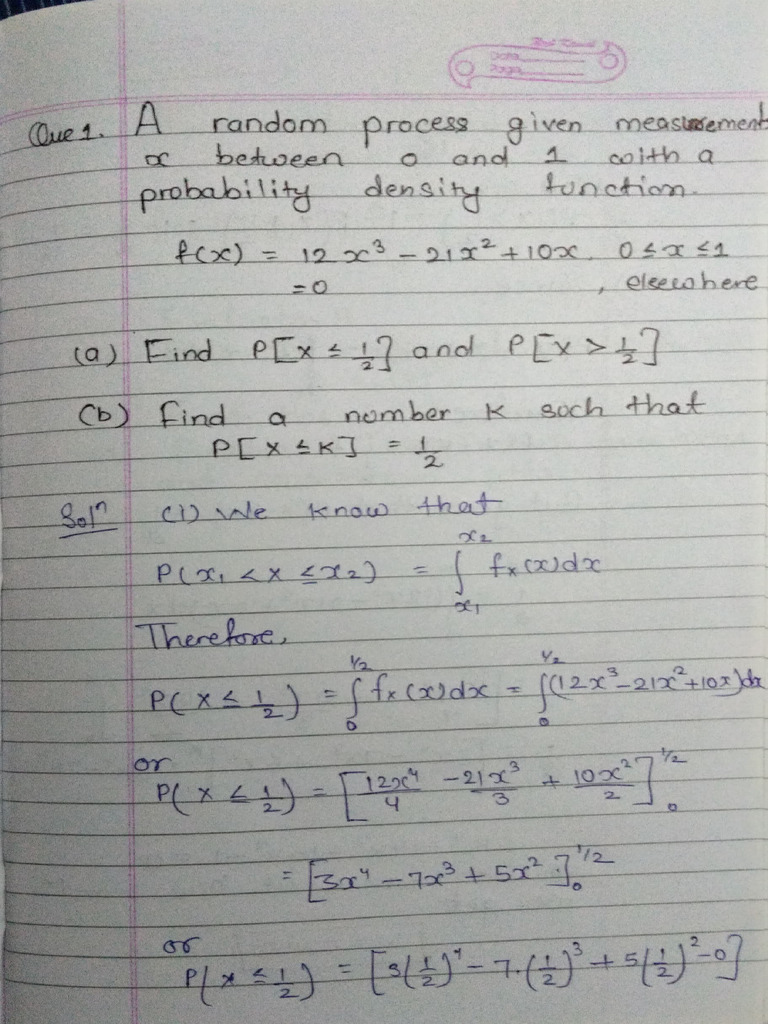 Date
Page
Que 1. A random process given measurement
x between 0 and 1 with a
probability density function.
f(x) = 12x³ - 21x² + 10x, 0 ≤ x ≤ 1
= 0 , elsewhere
(a) Find P[X ≤ 1/2] and P[X > 1/2]
(b) Find a number K such that
P[X ≤ K] = 1/2
Solⁿ (i) We know that
P(x₁ < X ≤ x₂) = ∫_{x₁}^{x₂} fx(x)dx
Therefore,
P(X ≤ 1/2) = ∫_0^{1/2} fx(x)dx = ∫_0^{1/2} (12x³-21x²+10x)dx
or
P(X ≤ 1/2) = [12x⁴/4 - 21x³/3 + 10x²/2]_0^{1/2}
= [3x⁴ - 7x³ + 5x²]_0^{1/2}
or
P(X ≤ 1/2) = [3(1/2)⁴ - 7.(1/2)³ + 5(1/2)² - 0]